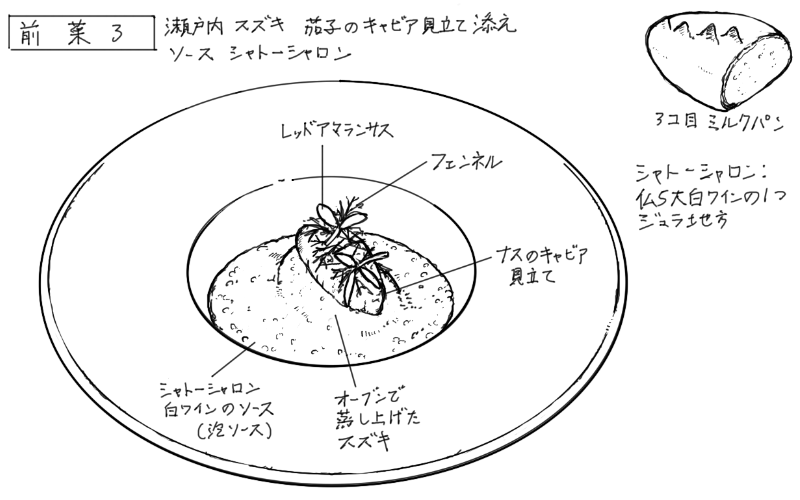 前菜3
瀬戸内 スズキ 茄子のキャビア見立て添え
ソース シャトーシャロン
3コ目 ミルクパン
シャトーシャロン:
仏5大白ワインの1つ
ジュラ地方
レッドアマランサス
フェンネル
ナスのキャビア
見立て
シャトーシャロン
白ワインのソース
(泡ソース)
オーブンで
蒸し上げた
スズキ